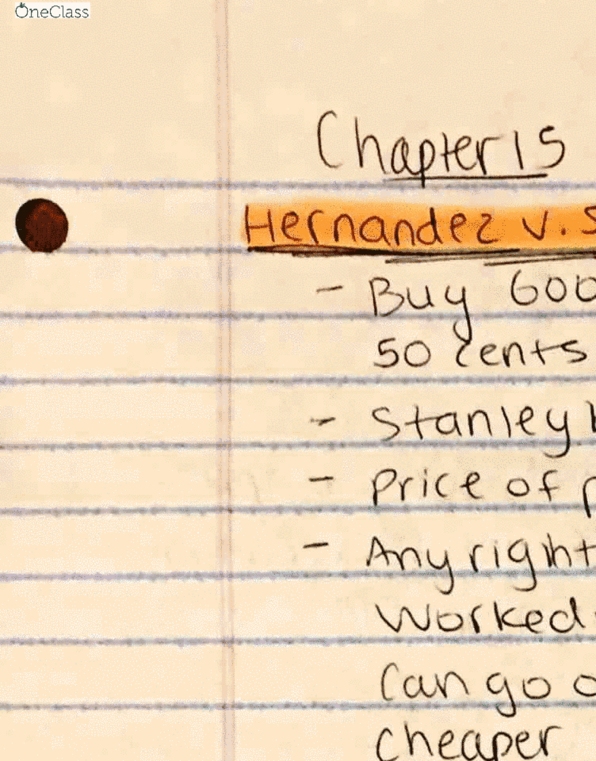 OneClass
Chapter 15
Hernandez v. S
- Buy 600
50 cents
- Stanley
- Price of p
- Any right
Worked
Can go o
cheaper